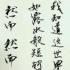 我知道这世界
如露水般短暂
然而 然而